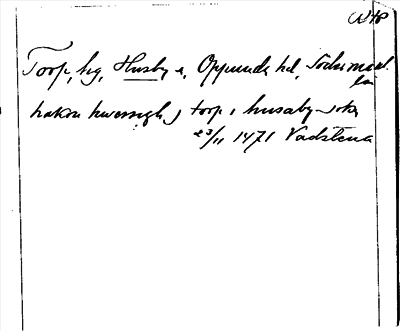 Torp, hg, Husby s, Oppunda hd, Söderman.
län
hakon hwessgh j torp i husaby sokn
23/11 1471 Vadstena